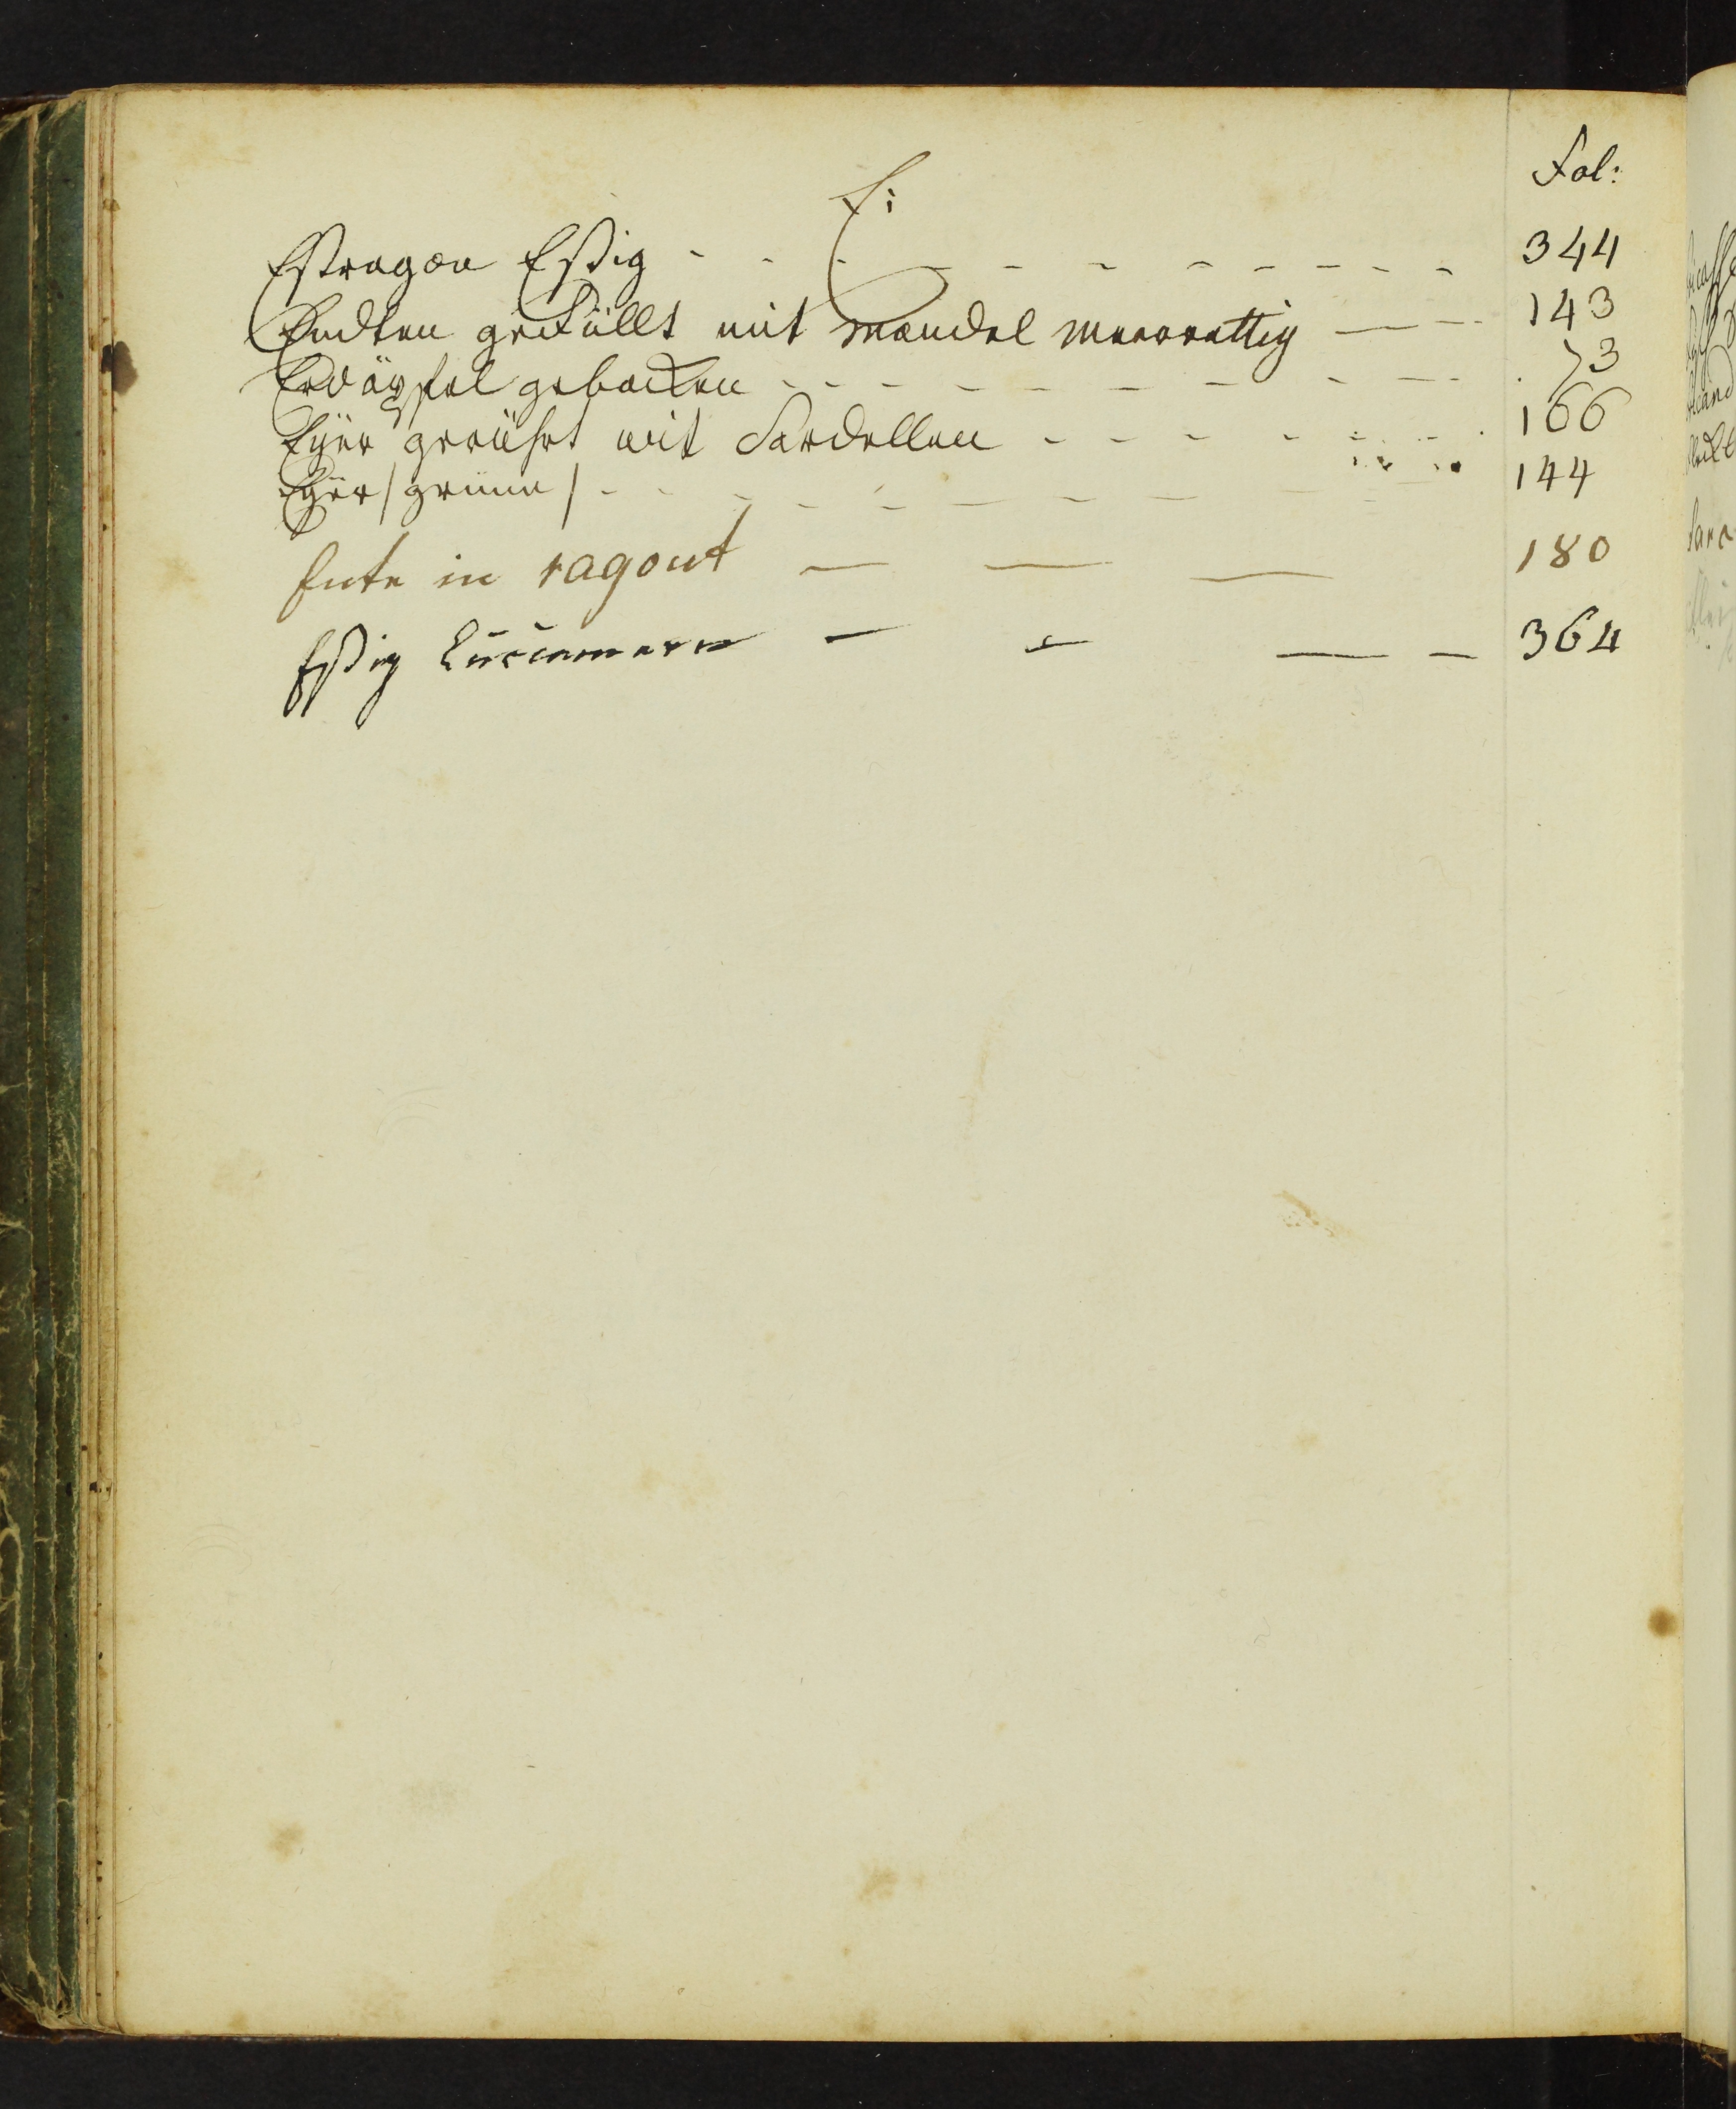 E:
Fol:
Estragon Eßig - - - - - - - - - - - 344
Endten gefüllt mit Mandel Meerrettig — - - 143
Erdäpfel gebacken - - - - - - - - - - 73
Eyer gerührt mit Sardellen - - - - - - - 166
Eyer / grünn / - - - - - - - - - 144
Ente in ragout — — — 180
Eßig Cucummern — — — — 364